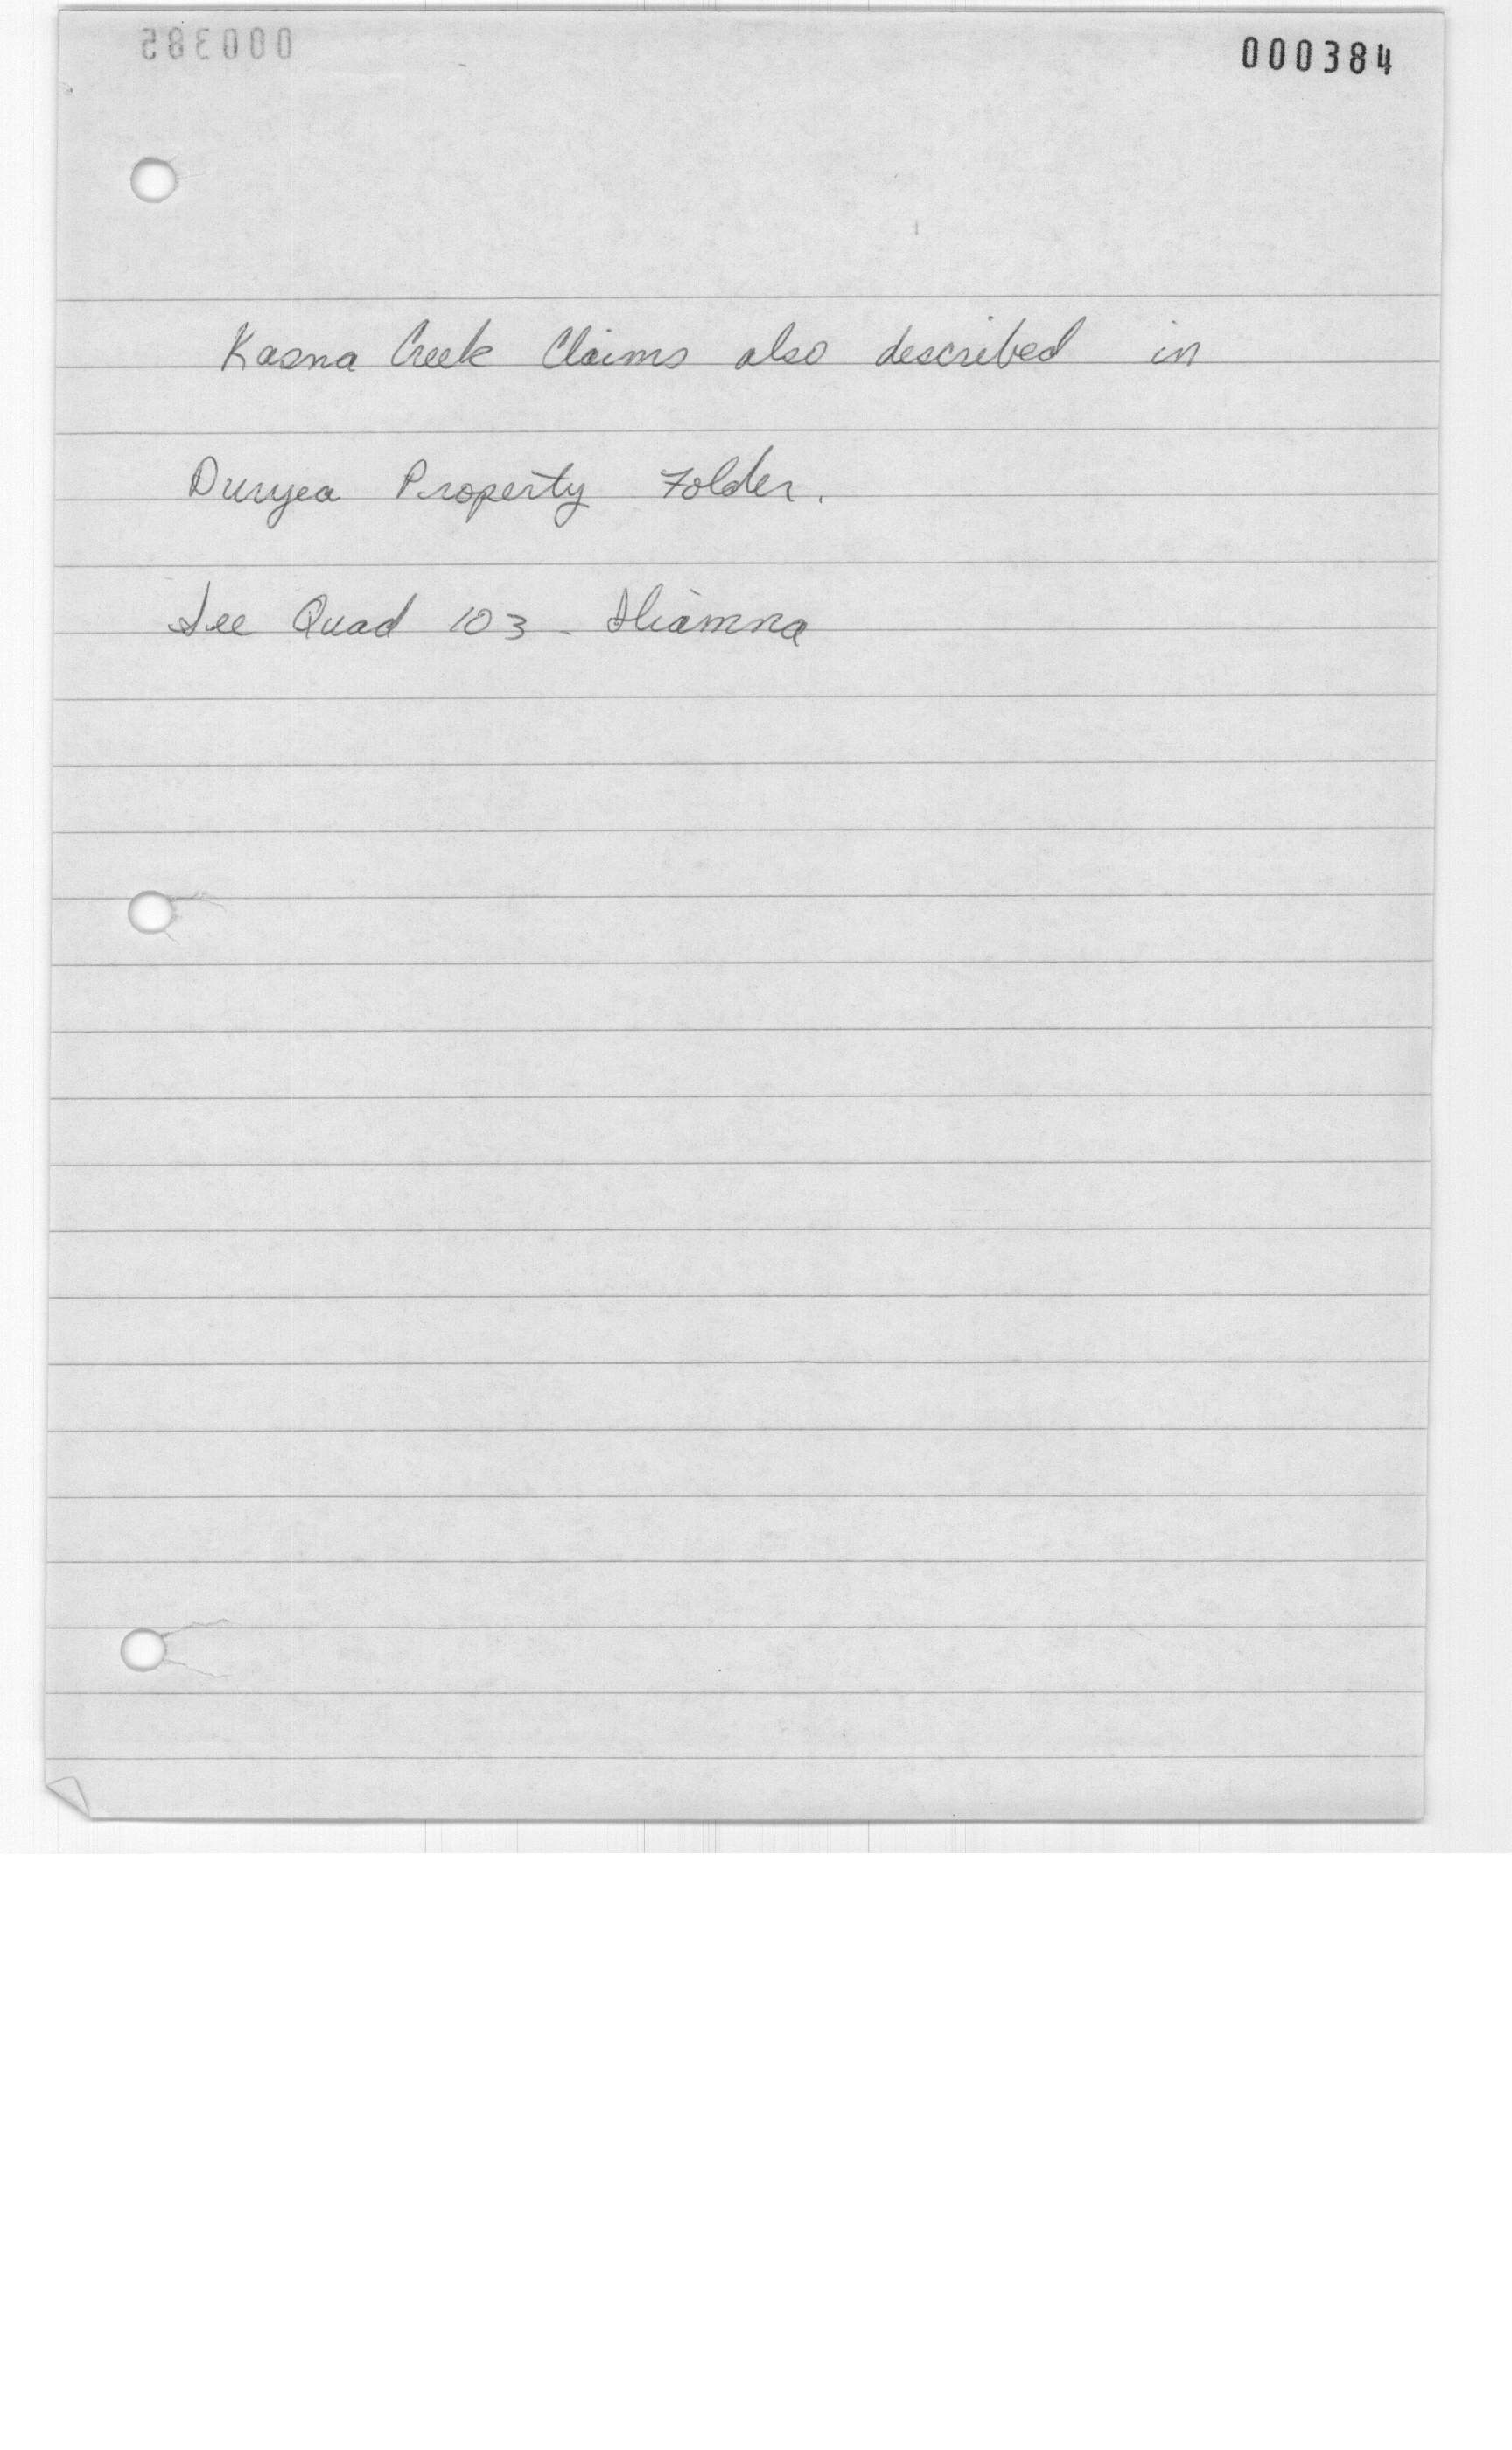 000384
Kasna Creek Claims also described in
Duryea Property Folder.
See Quad 103 - Iliamna